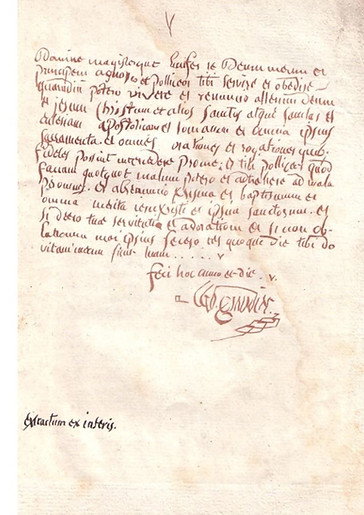 Domine magisterque Lucifer te Deum meum et
principem agnosco et polliceor tibi servire et obedire
quandiu potero vivere et renuncio alterum Deum
et Jesum Christum et alios sanctos atque sanctas et
ecclesiam Apostolicam et Romanam et omnia ipsius
sacramenta et omnes orationes et rogationes quib
fideles possint intercedere pro me et tibi polliceor quod
faciam quotquot malum potero et adtrahere ad mala
p omnes et abrenuncio chrisma et baptismum et
omnia merita et ipsius sanctorum et
si deero tuae servituti et adorationi et si non ob
lationem mei ipsius fecero ter quoque die tibi do
vitam meam sicut tuam
feci hoc anno et die
Grandier
extractum ex inferis.